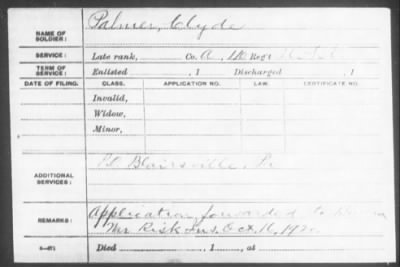 NAME OF SOLDIER: Palmer, Clyde
SERVICE: Late rank, Co. A, Reg't
TERM OF SERVICE: Enlisted , 1 Discharged , 1
DATE OF FILING. CLASS. APPLICATION NO. LAW. CERTIFICATE NO.
Invalid,
Widow,
Minor,
ADDITIONAL SERVICES: PO Blairsville, Pa
REMARKS: Application forwarded to
War Risk Ins. Oct. 16, 1920
Died , 1 , at